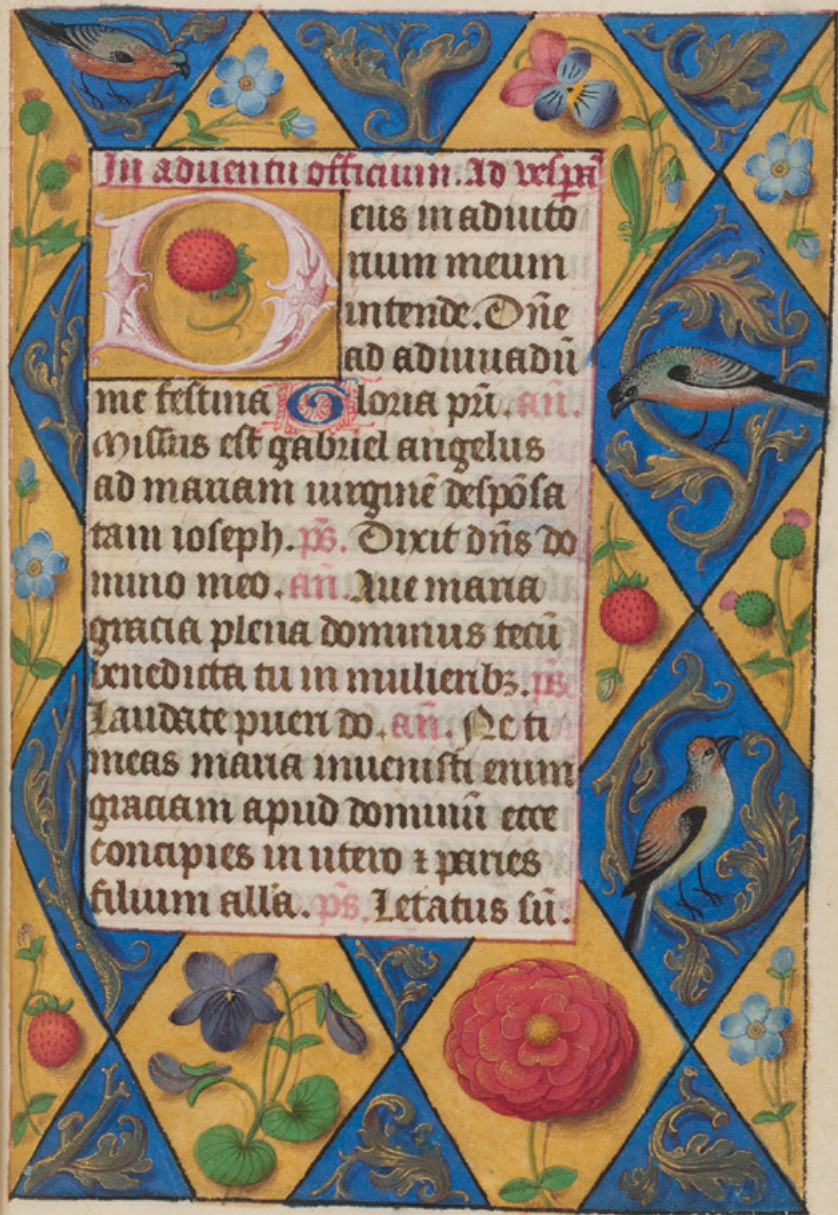 In aduentu officium. Ad vesꝑã
Deus in adiuto
rium meum
intende. Dñe
ad adiuuãdũ
me festina Gloria pr̃i. añ.
Missus est gabriel angelus
ad mariam uirginẽ despõsa
tam ioseph. p̃s. Dixit dñs do
mino meo. añ. Aue maria
gracia plena dominus tecũ
benedicta tu in mulieribꝫ. p̃s.
Laudate pueri do. añ. Ne ti
meas maria inuenisti enim
graciam apud dominũ ecce
concipies in utero ⁊ paries
filium alla̅. p̃s. Letatus sũ.